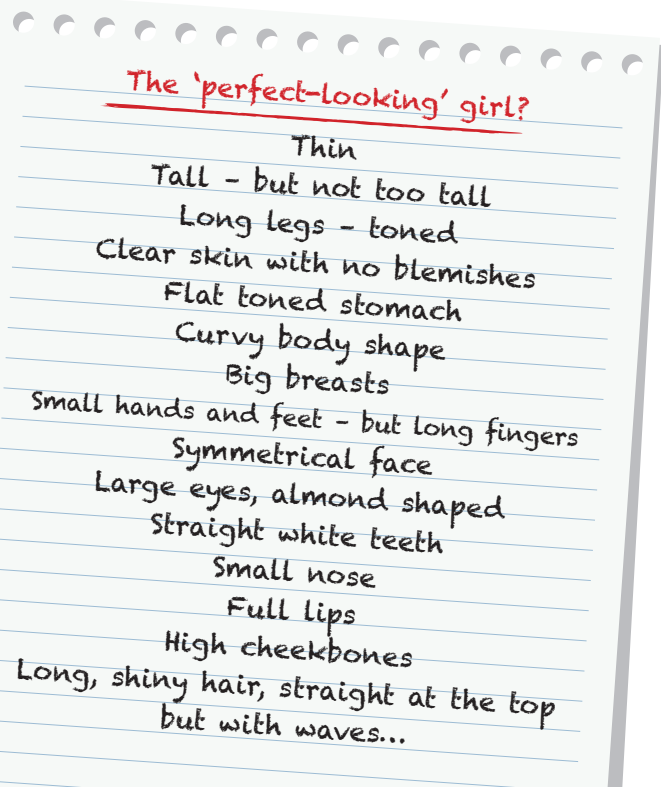 The ‘perfect-looking’ girl?
Thin
Tall – but not too tall
Long legs – toned
Clear skin with no blemishes
Flat toned stomach
Curvy body shape
Big breasts
Small hands and feet – but long fingers
Symmetrical face
Large eyes, almond shaped
Straight white teeth
Small nose
Full lips
High cheekbones
Long, shiny hair, straight at the top
but with waves...